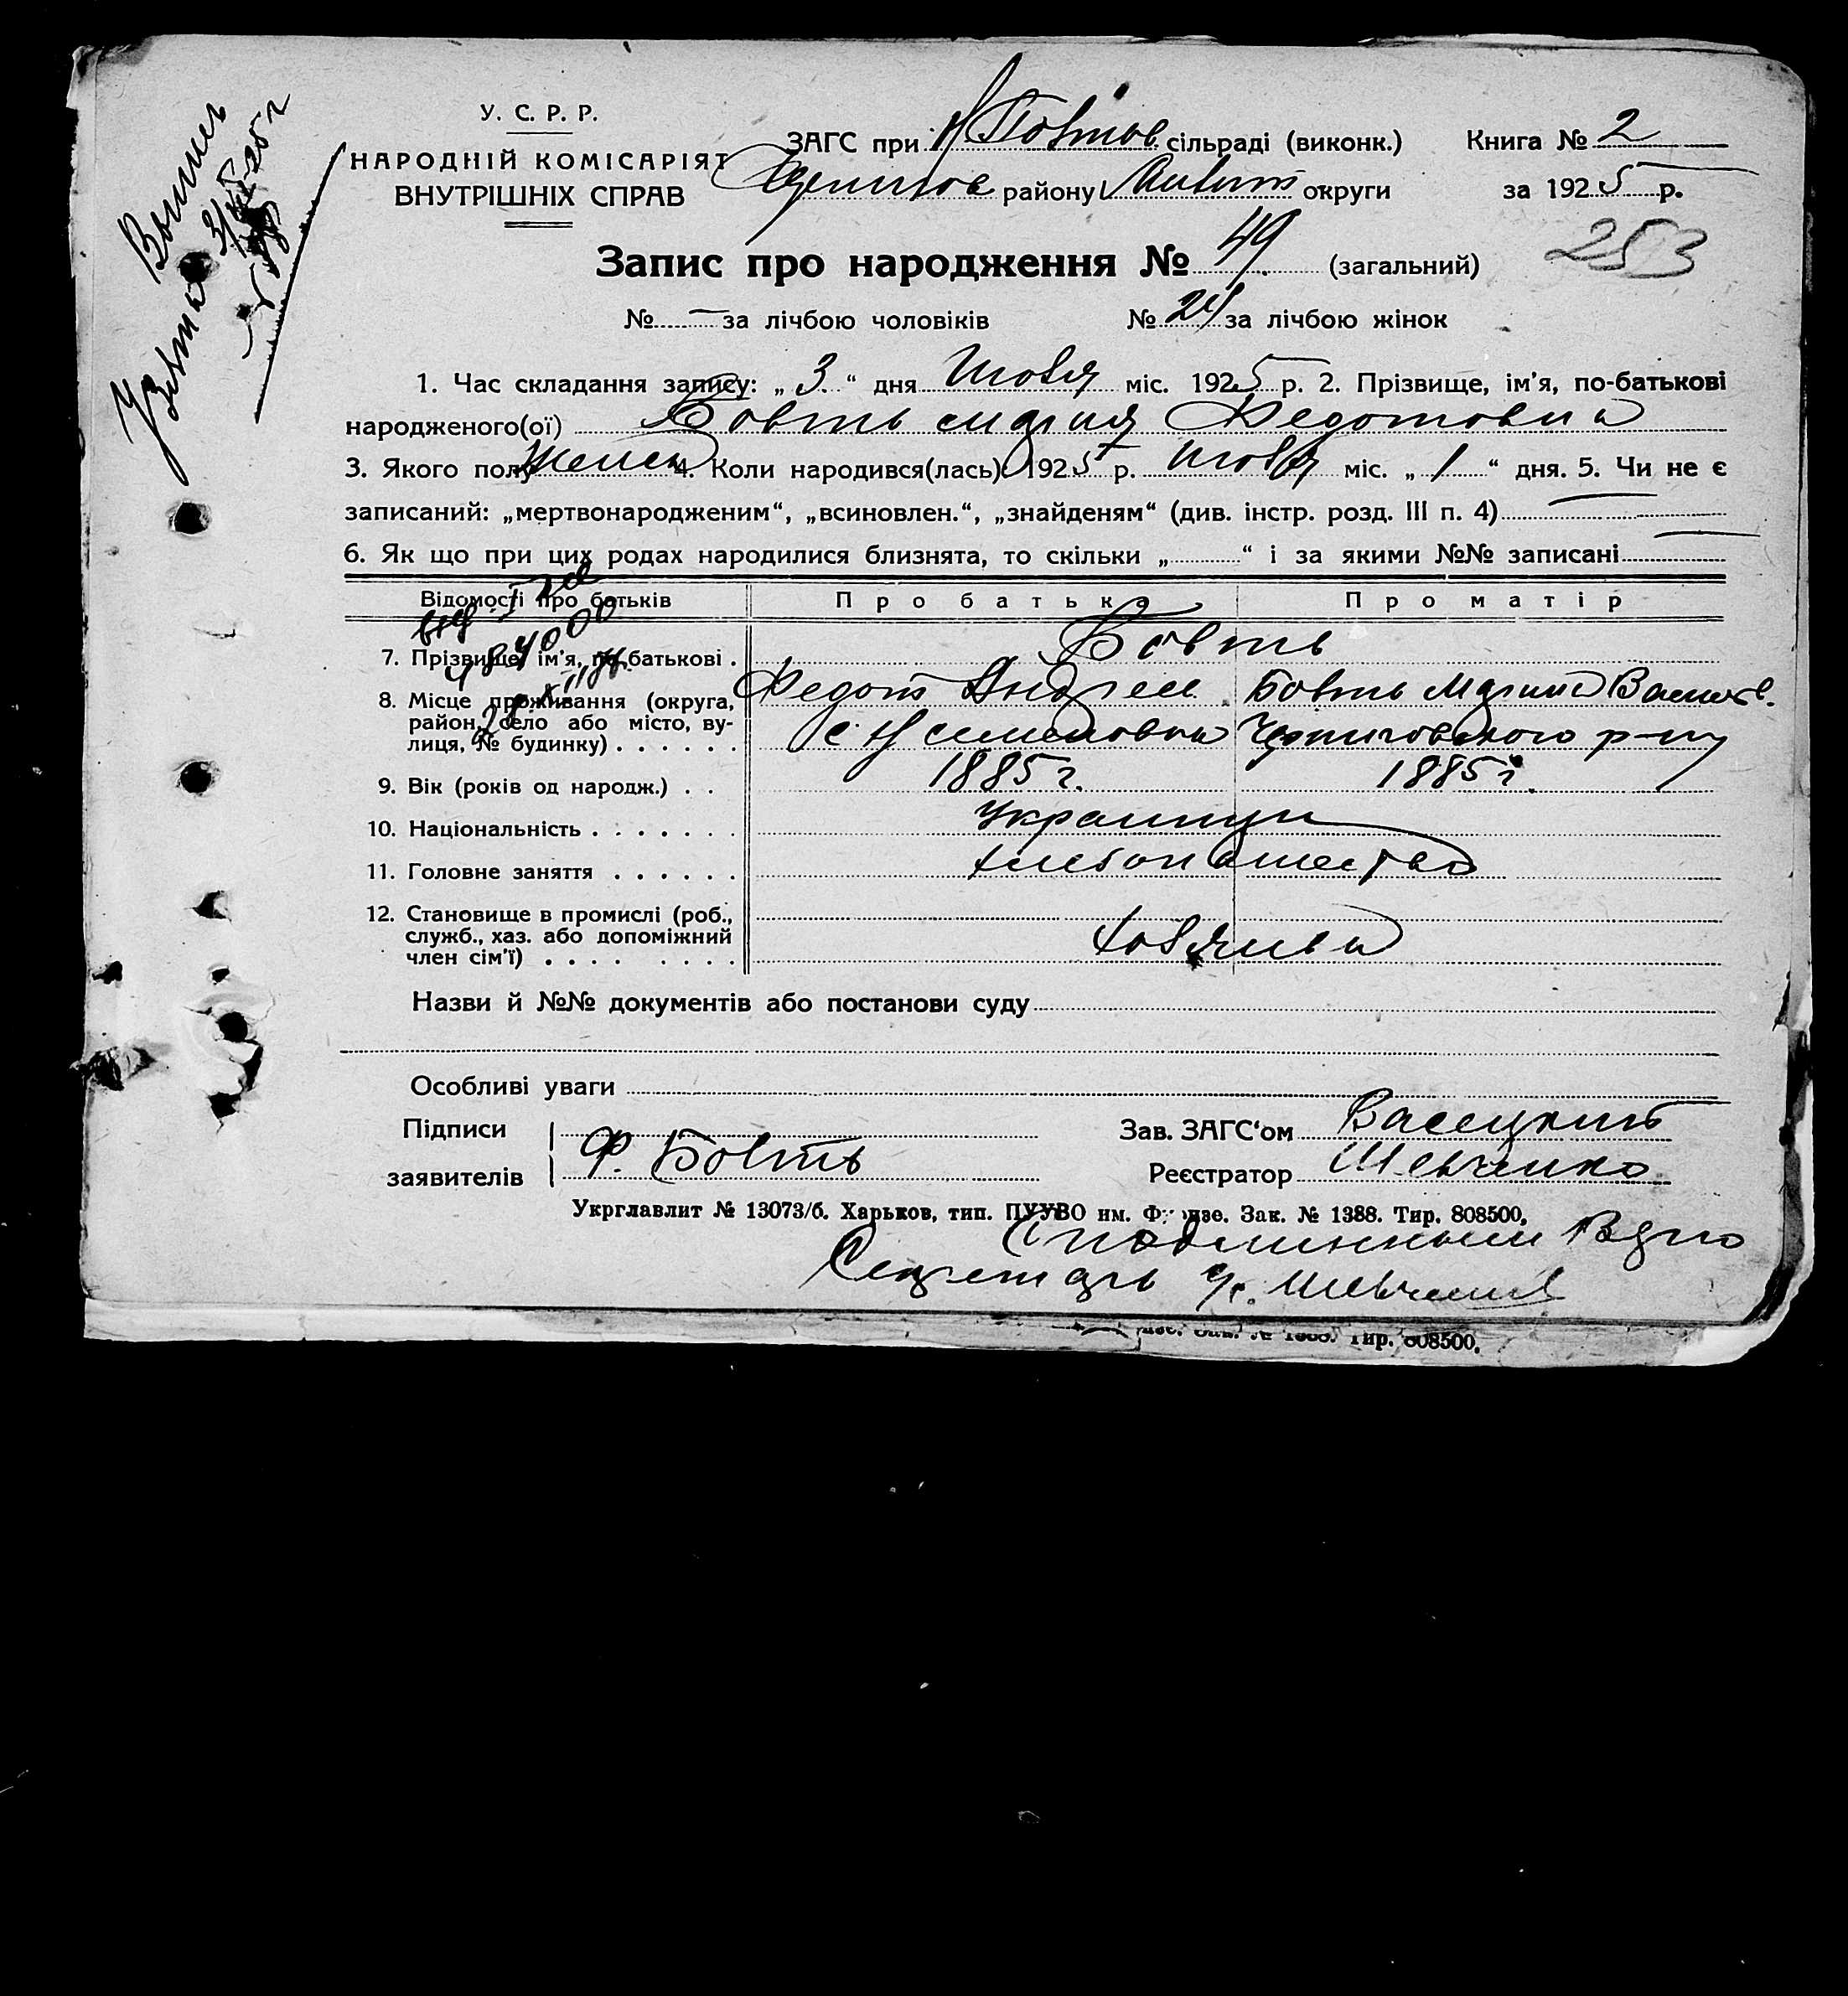 У. С. Р. Р.
НАРОДНІЙ КОМІСАРІЯТ
ВНУТРІШНІХ СПРАВ
ЗАГС при сільраді (виконк.)
району округи
Книга № 2
за 1925 р.
Запис про народження № 49 (загальний)
253
№ — за лічбою чоловіків № 24 за лічбою жінок
1. Час складання запису: „ 3 “ дня Июля міс. 1925 р. 2. Прізвище, ім’я, по-батькові
народженого(ої) Бовть Мария Федотовна
3. Якого полу Женск 4. Коли народився(лась): 1925 р. Июля міс. „ 1 “ дня. 5. Чи не є
записаний: „мертвонародженим“, „всиновлен.“, „знайденям“ (див. інстр. розд. III п. 4) —
6. Як що при цих родах народилися близнята, то скільки „ “ і за якими №№ записані —
Відомості про батьків Про батька Про матір
7. Прізвище, ім’я, по батькові . Бовть
8. Місце проживання (округа,
район, село або місто, ву-
лиця, № будинку)
Федот Андреев. Бовть Мария
с. Н Семеновка р-ну
9. Вік (років од народж.) . . 1885 г. 1885 г.
10. Національність Украинцы
11. Головне заняття хлебопашество
12. Становище в промислі (роб.,
служб., хаз. або допоміжний
член сім’ї)
хозяива
Назви й №№ документів або постанови суду
Особливі уваги
Підписи
заявителів
Ф. Бовть
Зав. ЗАГС‘ом Васецкий
Реєстратор Шевченко
Укрглавлит № 13073/б. Харьков, тип. ПУУВО им. Фрунзе. Зак. № 1388. Тир. 808500,
С подлинным верно
Секретарь Шевченко
Тир. 808500,